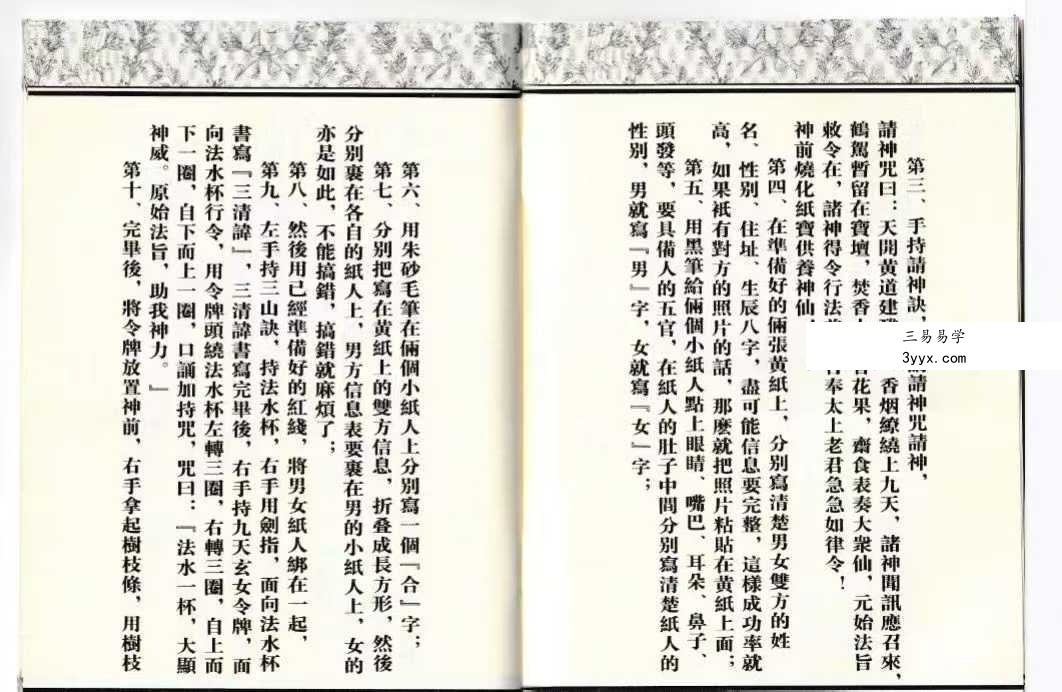 第三、手持請神訣，請神咒請神，
請神咒曰：天開黄道建香烟繚繞上九天，諸神聞訊應召來，
鶴駕暫留在寶壇，焚香花果，齋食表奏大衆仙，元始法旨
敕令在，諸神得令行法奉太上老君急急如律令！
神前燒化紙寶供養神仙
第四、在準備好的倆張黄紙上，分别寫清楚男女雙方的姓
名、性别、住址、生辰八字，盡可能信息要完整，這樣成功率就
高，如果衹有對方的照片的話，那麽就把照片粘貼在黄紙上面；
第五、用黑筆給倆個小紙人點上眼睛、嘴巴、耳朵、鼻子、
頭發等，要具備人的五官，在紙人的肚子中間分别寫清楚紙人的
性别，男就寫『男』字，女就寫『女』字；
第六、用朱砂毛筆在倆個小紙人上分别寫一個『合』字；
第七、分别把寫在黄紙上的雙方信息，折叠成長方形，然後
分别裹在各自的紙人上，男方信息表要裹在男的小紙人上，女的
亦是如此，不能搞錯，搞錯就麻煩了；
第八、然後用已經準備好的紅綫，將男女紙人綁在一起，
第九、左手持三山訣，持法水杯，右手用劍指，面向法水杯
書寫『三清諱』，三清諱書寫完畢後，右手持九天玄女令牌，面
向法水杯行令，用令牌頭繞法水杯左轉三圈，右轉三圈，自上而
下一圈，自下而上一圈，口誦加持咒，咒曰：『法水一杯，大顯
神威。原始法旨，助我神力。』
第十、完畢後，將令牌放置神前，右手拿起樹枝條，用樹枝
三易易学
3yyx.com